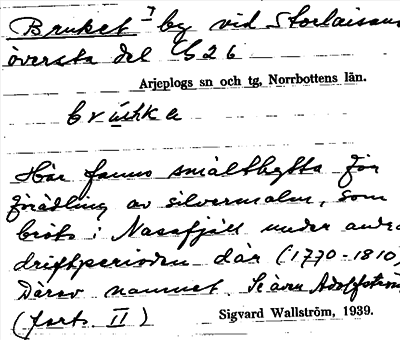 Bruket ⁊ by vid Storlaisans
översta del G26
Arjeplogs sn och tg, Norrbottens län.
brúhka
Här fanns smälthytta för
förädling av silvermalm, som
bröts i Nasafjäll under andra
driftperioden där (1770-1810)
Därav namnet. Se även Adolfström
(forts. II)
Sigvard Wallström, 1939.